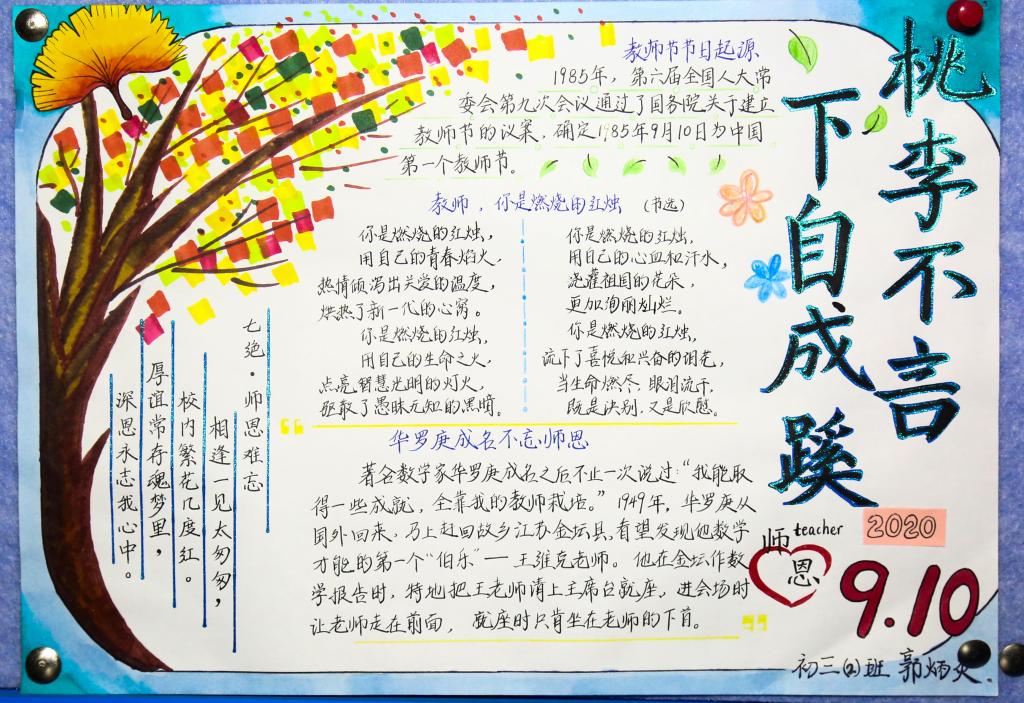 桃李不言
下自成蹊
教师节节日起源
1985年，第六届全国人大常
委会第九次会议通过了国务院关于建立
教师节的议案，确定1985年9月10日为中国
第一个教师节。
教师，你是燃烧的红烛 （节选）
你是燃烧的红烛，
用自己的青春焰火，
热情倾泻出关爱的温度，
烘热了新一代的心窝。
你是燃烧的红烛，
用自己的生命之火，
点亮智慧光明的灯火，
驱散了愚昧无知的黑暗。
你是燃烧的红烛，
用自己的心血和汗水，
浇灌祖国的花朵，
更加绚丽灿烂。
你是燃烧的红烛，
流下了喜悦和兴奋的泪花，
当生命燃尽，眼泪流干，
既是诀别，又是欣慰。
七绝·师恩难忘
相逢一见太匆匆，
校内繁花几度红。
厚谊常存魂梦里，
深恩永志我心中。
华罗庚成名不忘师恩
著名数学家华罗庚成名之后不止一次说过：“我能取
得一些成就，全靠我的教师栽培。”1949年，华罗庚从
国外回来，马上赶回故乡江苏金坛县，看望发现他数学
才能的第一个“伯乐”——王维克老师。他在金坛作数
学报告时，特地把王老师请上主席台就座，进会场时
让老师走在前面，就座时只肯坐在老师的下首。
师恩
teacher
2020
9.10
初三(2)班 郭炳炎